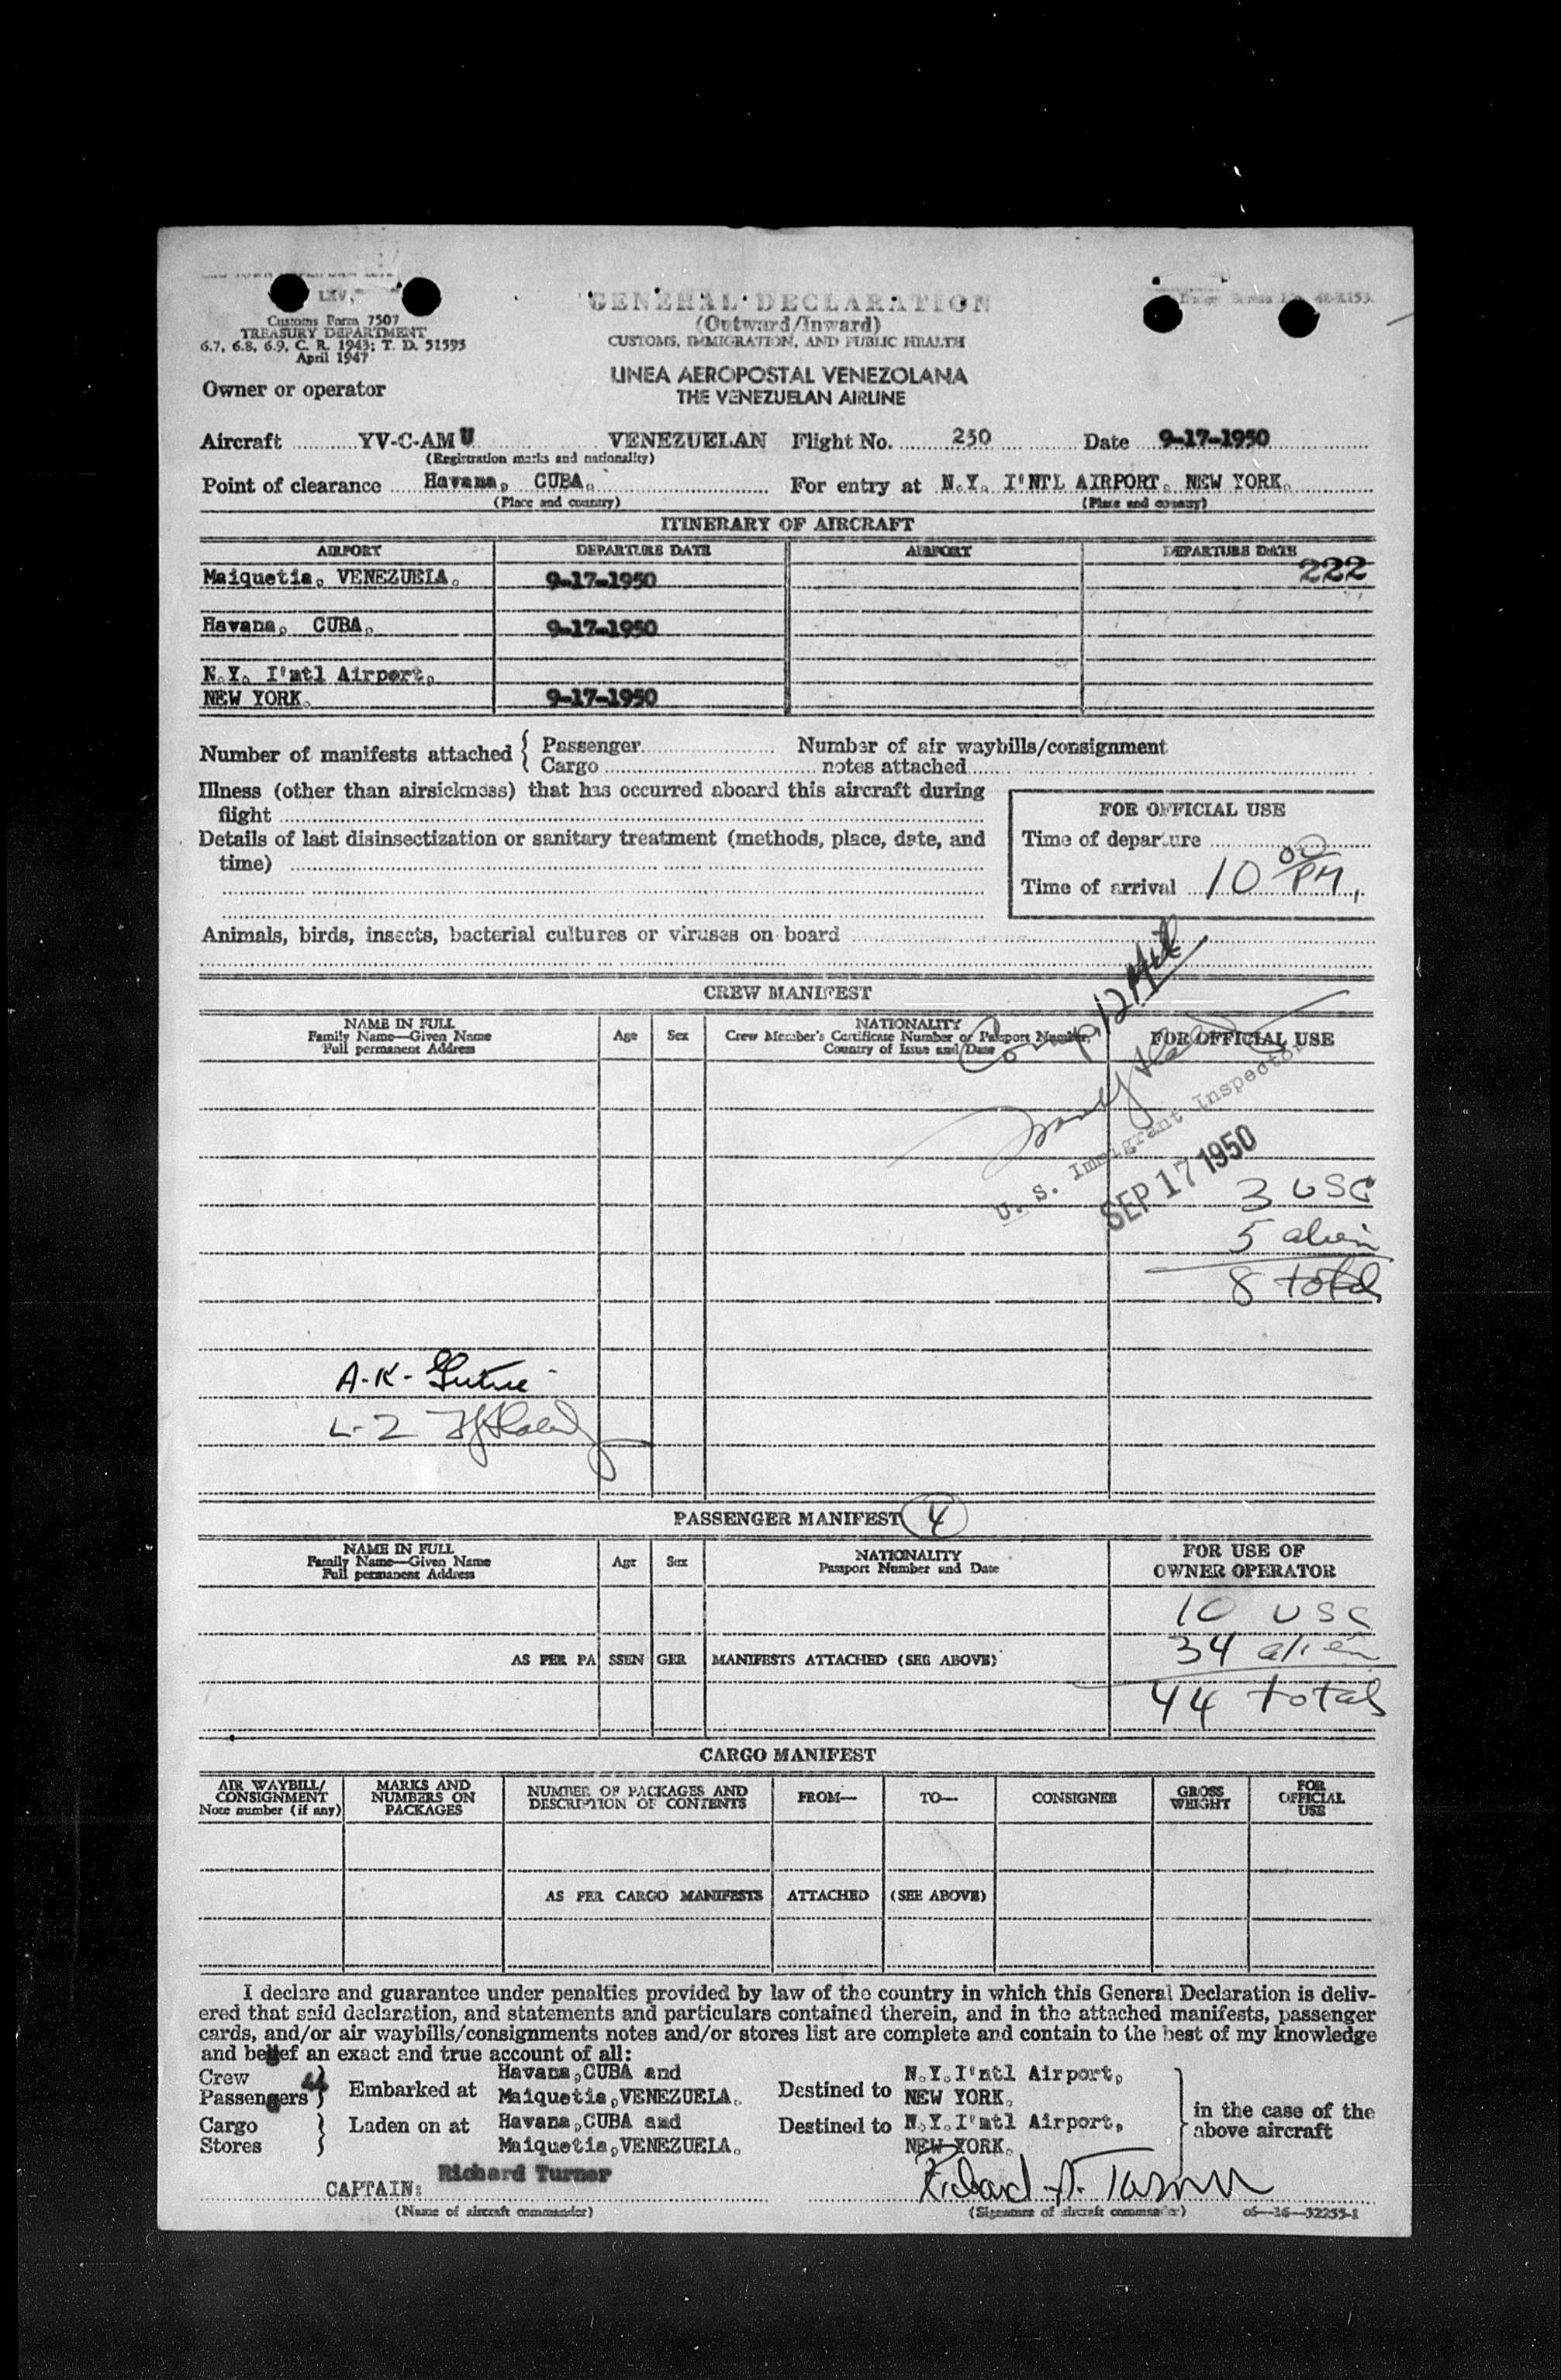 LAV.
Customs Form 7507
TREASURY DEPARTMENT
6.7, 6.8, 6.9, C. R. 1943; T. D. 51595
April 1947
GENERAL DECLARATION
(Outward/Inward)
CUSTOMS, IMMIGRATION, AND PUBLIC HEALTH
LINEA AEROPOSTAL VENEZOLANA
THE VENEZUELAN AIRLINE
Owner or operator
Aircraft YV-C-AMU VENEZUELAN Flight No. 250 Date 9-17-1950
(Registration marks and nationality)
Point of clearance Havana, CUBA. For entry at N.Y. I'NTL AIRPORT. NEW YORK.
(Place and country) (Place and country)
ITINERARY OF AIRCRAFT
AIRPORT DEPARTURE DATE AIRPORT DEPARTURE DATE
222
Maiquetia, VENEZUELA. 9-17-1950
Havana, CUBA. 9-17-1950
N.Y. I'ntl Airport,
NEW YORK. 9-17-1950
Number of manifests attached { Passenger Number of air waybills/consignment
Cargo notes attached
Illness (other than airsickness) that has occurred aboard this aircraft during
flight
Details of last disinsectization or sanitary treatment (methods, place, date, and
time)
FOR OFFICIAL USE
Time of departure
Time of arrival 10 00 PM
Animals, birds, insects, bacterial cultures or viruses on board
CREW MANIFEST
NAME IN FULL
Family Name—Given Name
Full permanent Address
Age Sex
NATIONALITY
Crew Member's Certificate Number or Passport Number,
Country of Issue and Date
FOR OFFICIAL USE
Comp. 12 Mid
U. S. Immigrant Inspector
SEP 17 1950
3 USC
5 alien
8 total
A-K-
L-Z
PASSENGER MANIFEST 4
NAME IN FULL
Family Name—Given Name
Full permanent Address
Age Sex
NATIONALITY
Passport Number and Date
FOR USE OF
OWNER OPERATOR
10 USC
34 alien
44 total
AS PER PASSENGER MANIFESTS ATTACHED (SEE ABOVE)
CARGO MANIFEST
AIR WAYBILL/
CONSIGNMENT
Note number (if any)
MARKS AND
NUMBERS ON
PACKAGES
NUMBER OF PACKAGES AND
DESCRIPTION OF CONTENTS
FROM— TO— CONSIGNEE
GROSS
WEIGHT
FOR
OFFICIAL
USE
AS PER CARGO MANIFESTS ATTACHED (SEE ABOVE)
I declare and guarantee under penalties provided by law of the country in which this General Declaration is deliv-
ered that said declaration, and statements and particulars contained therein, and in the attached manifests, passenger
cards, and/or air waybills/consignments notes and/or stores list are complete and contain to the best of my knowledge
and belief an exact and true account of all:
Crew
Passengers 44 } Embarked at Havana,CUBA and
Maiquetia,VENEZUELA. Destined to N.Y.I'ntl Airport,
NEW YORK.
Cargo
Stores } Laden on at Havana,CUBA and
Maiquetia,VENEZUELA. Destined to N.Y.I'ntl Airport,
NEW YORK.
in the case of the
above aircraft
CAPTAIN: Richard Turner
Richard A. Turner
(Name of aircraft commander) (Signature of aircraft commander) 06—16—52255-1